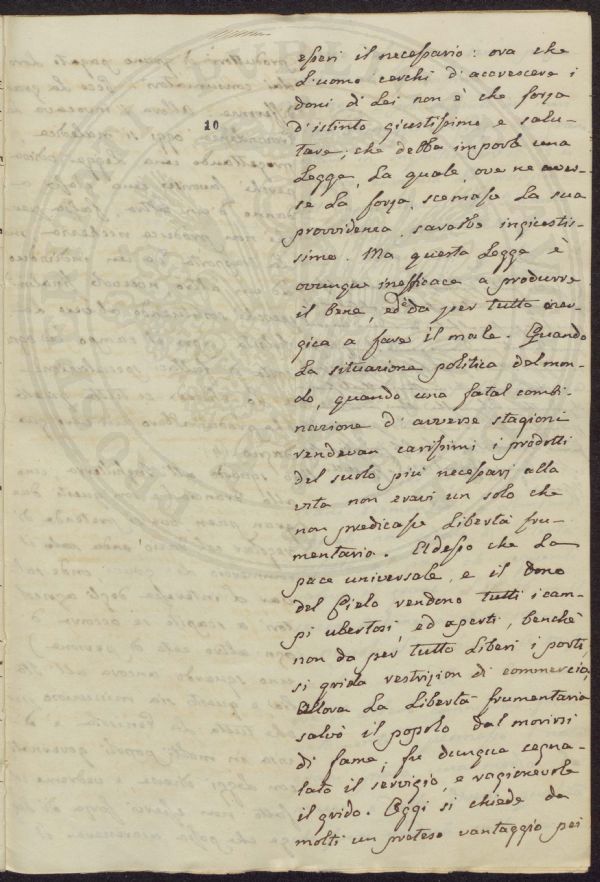 10
essere il necessario: ora che
L'uomo cerchi d'accrescere i
doni di Lei non è che forza
d'istinto giustissimo e salu-
tare; che debba imporle una
Legge, La quale, ove ne aves-
se La forza, scemasse La sua
provvidenza, sarebbe ingiustis-
simo. Ma questa Legge è
ovunque inefficace a produrre
il bene, ed è da per tutto ener-
gica a fare il male. Quando
La situazione politica del mon-
do, quando una fatal combi-
nazione d'avverse stagioni
rendevan carissimi i prodotti
del suolo più necessarj alla
vita non eravi un solo che
non predicasse Libertà fru-
mentaria. Adesso che La
pace universale, e il dono
del Cielo rendono tutti i cam-
pi ubertosi, ed aperti, benchè
non da per tutto Liberi i porti,
si grida restrizion di commercio,
Allora La Libertà frumentaria
salvò il popolo dal morirsi
di fame; fu dunque segna-
lato il servigio, e ragionevole
il grido. Oggi si chiede da
molti un preteso vantaggio pei